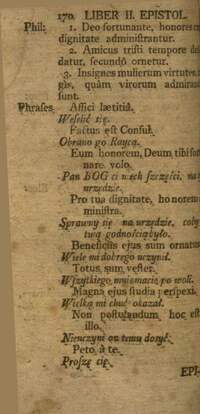 170 LIBER II. EPISTOL.
Phil: 1. Deo fortunante, honores cu
dignitate administrantur.
2. Amicus tristi tempore de
datur, secundo ornetur.
3. Insignes mulierum virtutes,
gis, quàm virorum admiran
sunt.
Phrases. Affici lætitiâ.
Weselić się.
Factus est Consul.
Obrano go Raycą.
Eum honorem, Deum tibi for
nare volo.
Pan BOG ci niech szczęści, na
urzędzie.
Pro tua dignitate, honorem
ministra.
Sprawuy się na urzędzie, coby
twą godnością było.
Beneficiis ejus sum ornatus
Wiele mi dobrego uczynił.
Totus sum vester.
Wszystkiego, mnie macie po woli.
Magna ejus studia perspexi.
Wielką mi chuć okazał.
Non postulandum hoc est
illo.
Nieuczyni on temu dosyć.
Peto à te.
Proszę cię.
EPI-